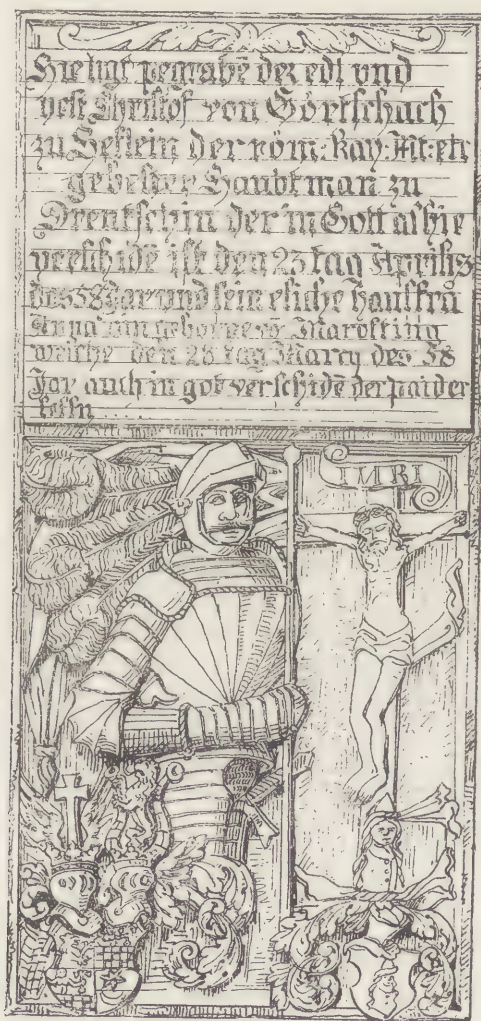 Hie ligt pegrabē der edl und
vest Christof von Görtschach
zu Seslein der röm: Kay: Mt: etc
gebester Haubtman zu
Drentschin der in Gott alhie
verschidē ist den 23 tag Aprilis
des 58 Jar und sein eliche Hausfrū
Anna ain geborne vō
welche den 28 tag Marcy des 58
Jor auch in got verschidē der paider
INRI